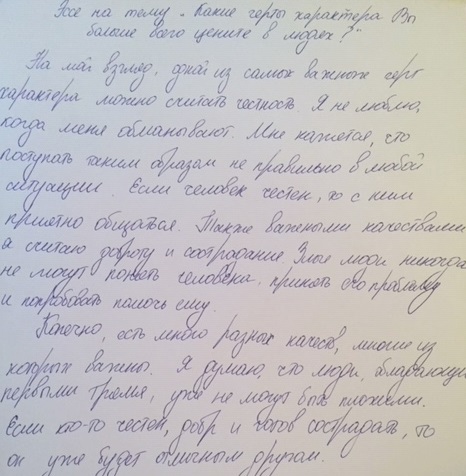 Эссе на тему „Какие черты характера Вы
больше всего цените в людях?"
На мой взгляд, одной из самых важных черт
характера можно считать честность. Я не люблю,
когда меня обманывают. Мне кажется, что
поступать таким образом не правильно в любой
ситуации. Если человек честен, то с ним
приятно общаться. Также важными качествами
я считаю доброту и сострадание. Злые люди никогда
не могут понять человека, принять его проблему
и попробовать помочь ему.
Конечно, есть много разных качеств, многие из
которых важны. Я думаю, что люди, обладающие
первыми тремя, уже не могут быть плохими.
Если кто-то честен, добр и готов сострадать, то
он уже будет отличным другом.